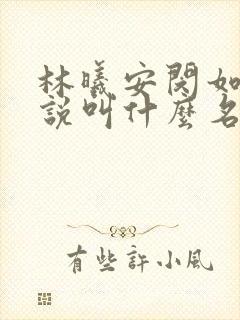 林曦安閔如
說叫什麼名
有些許小風